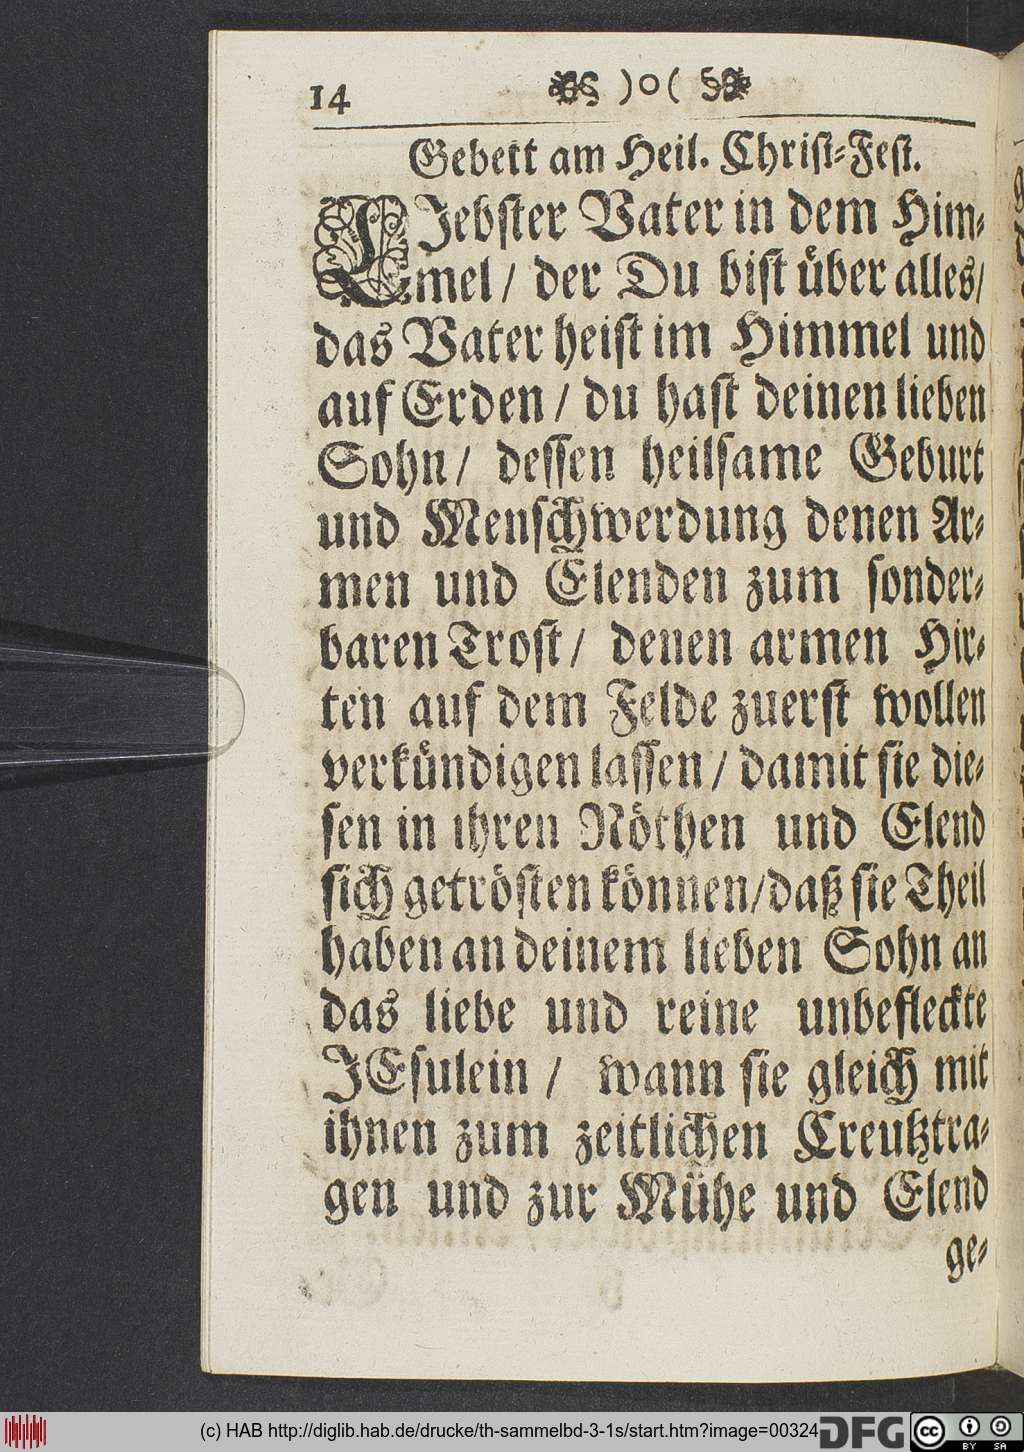 14 )o(
Gebett am Heil. Christ-Fest.
LIebster Vater in dem Him-
mel / der Du bist über alles /
das Vater heist im Himmel und
auf Erden / du hast deinen lieben
Sohn / dessen heilsame Geburt
und Menschwerdung denen Ar-
men und Elenden zum sonder-
baren Trost / denen armen Hir-
ten auf dem Felde zuerst wollen
verkündigen lassen / damit sie die-
sen in ihren Nöthen und Elend
sich getrösten können / daß sie Theil
haben an deinem lieben Sohn an
das liebe und reine unbefleckte
JEsulein / wann sie gleich mit
ihnen zum zeitlichen Creutztra-
gen und zur Mühe und Elend
ge-
(c) HAB http://diglib.hab.de/drucke/th-sammelbd-3-1s/start.htm?image=00324
DFG
cc BY SA